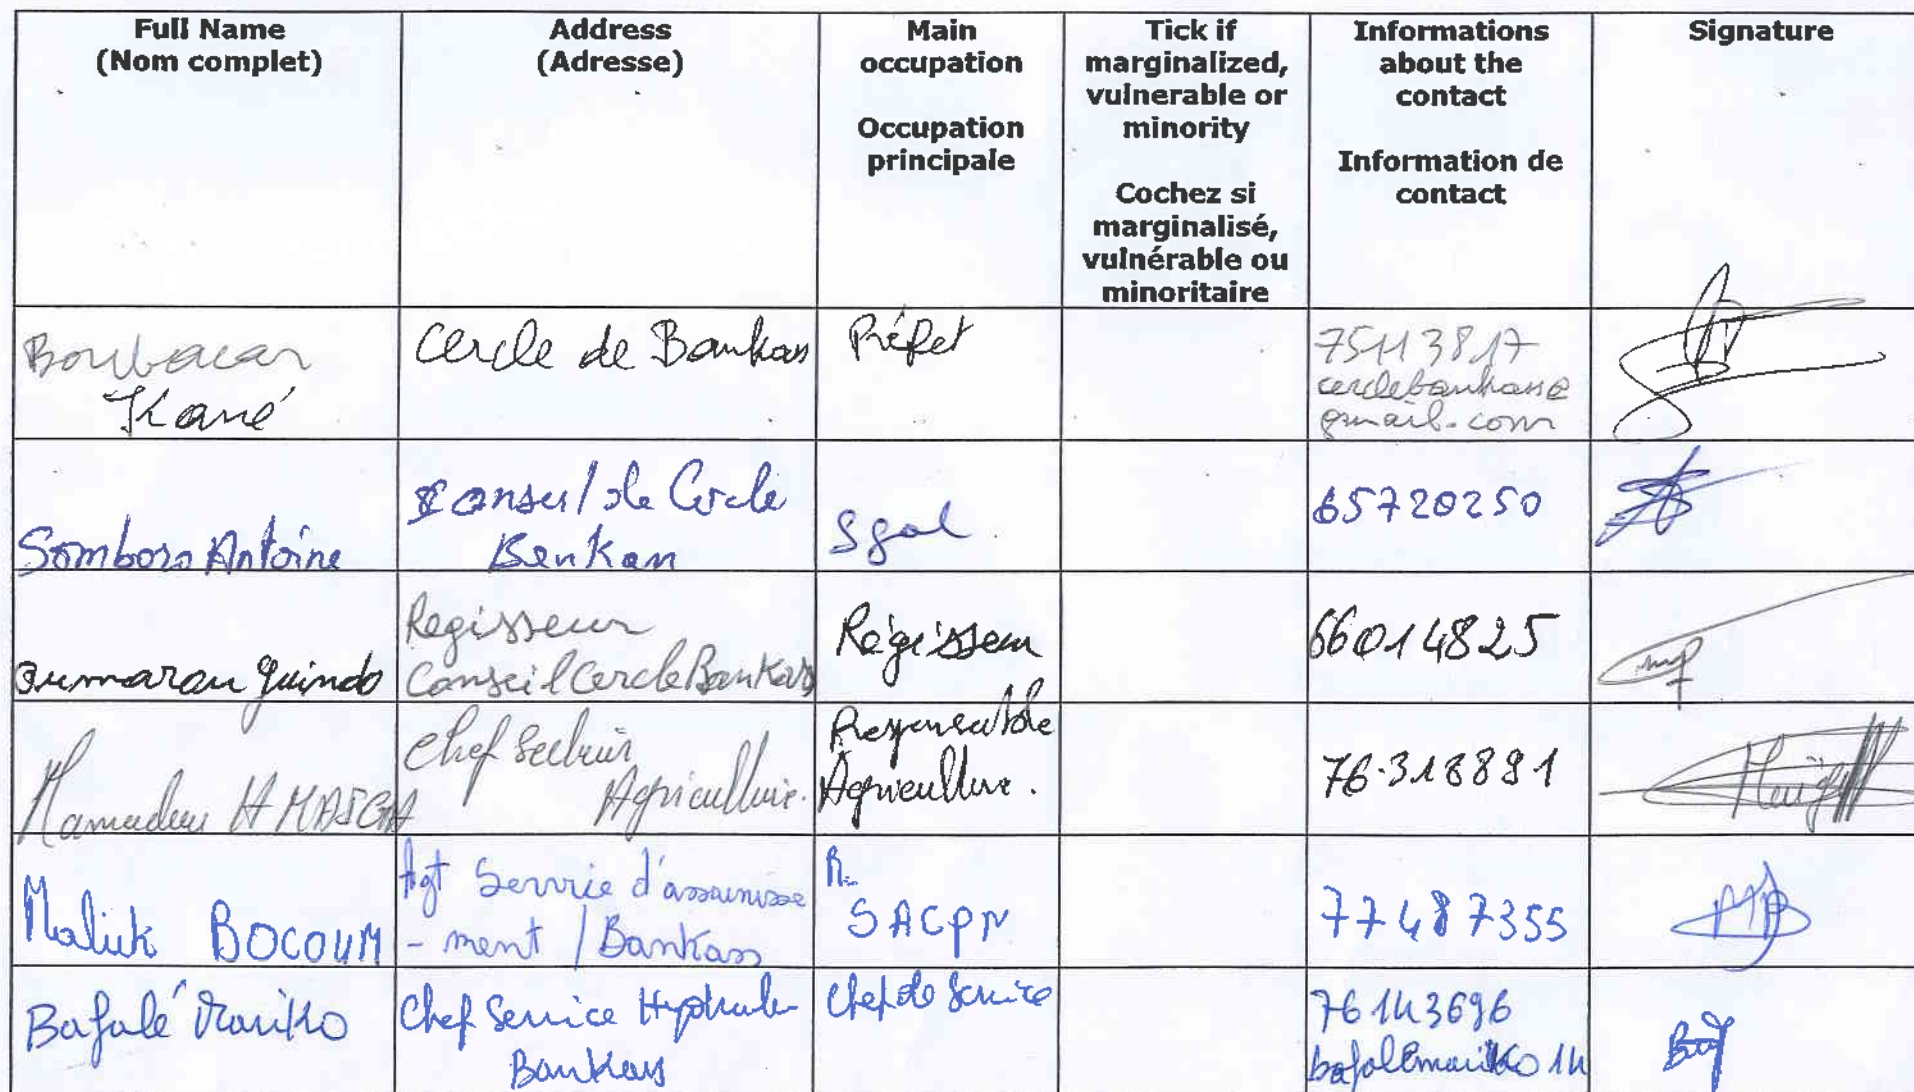 Full Name
(Nom complet)
Address
(Adresse)
Main
occupation
Occupation
principale
Tick if
marginalized,
vulnerable or
minority
Cochez si
marginalisé,
vulnérable ou
minoritaire
Informations
about the
contact
Information de
contact
Signature
Boubacar
Kané
Cercle de Bankass
Préfet
cerclebankass@
gmail.com
Somboro Antoine
Conseil de Cercle
Bankass
Sgal
65720250
Oumarou Guindo
Regisseur
Conseil Cercle Bankass
Régisseur
66014825
Mamadou H MAIGA
Chef Secteur
Agriculture.
Responsable
Agriculture.
76.318891
Malick BOCOUM
Agt Service d'assainisse
- ment / Bankass
R.
SACPN
77487355
Bafalé Mariko
Chef Service
Bankass
Chef de Service